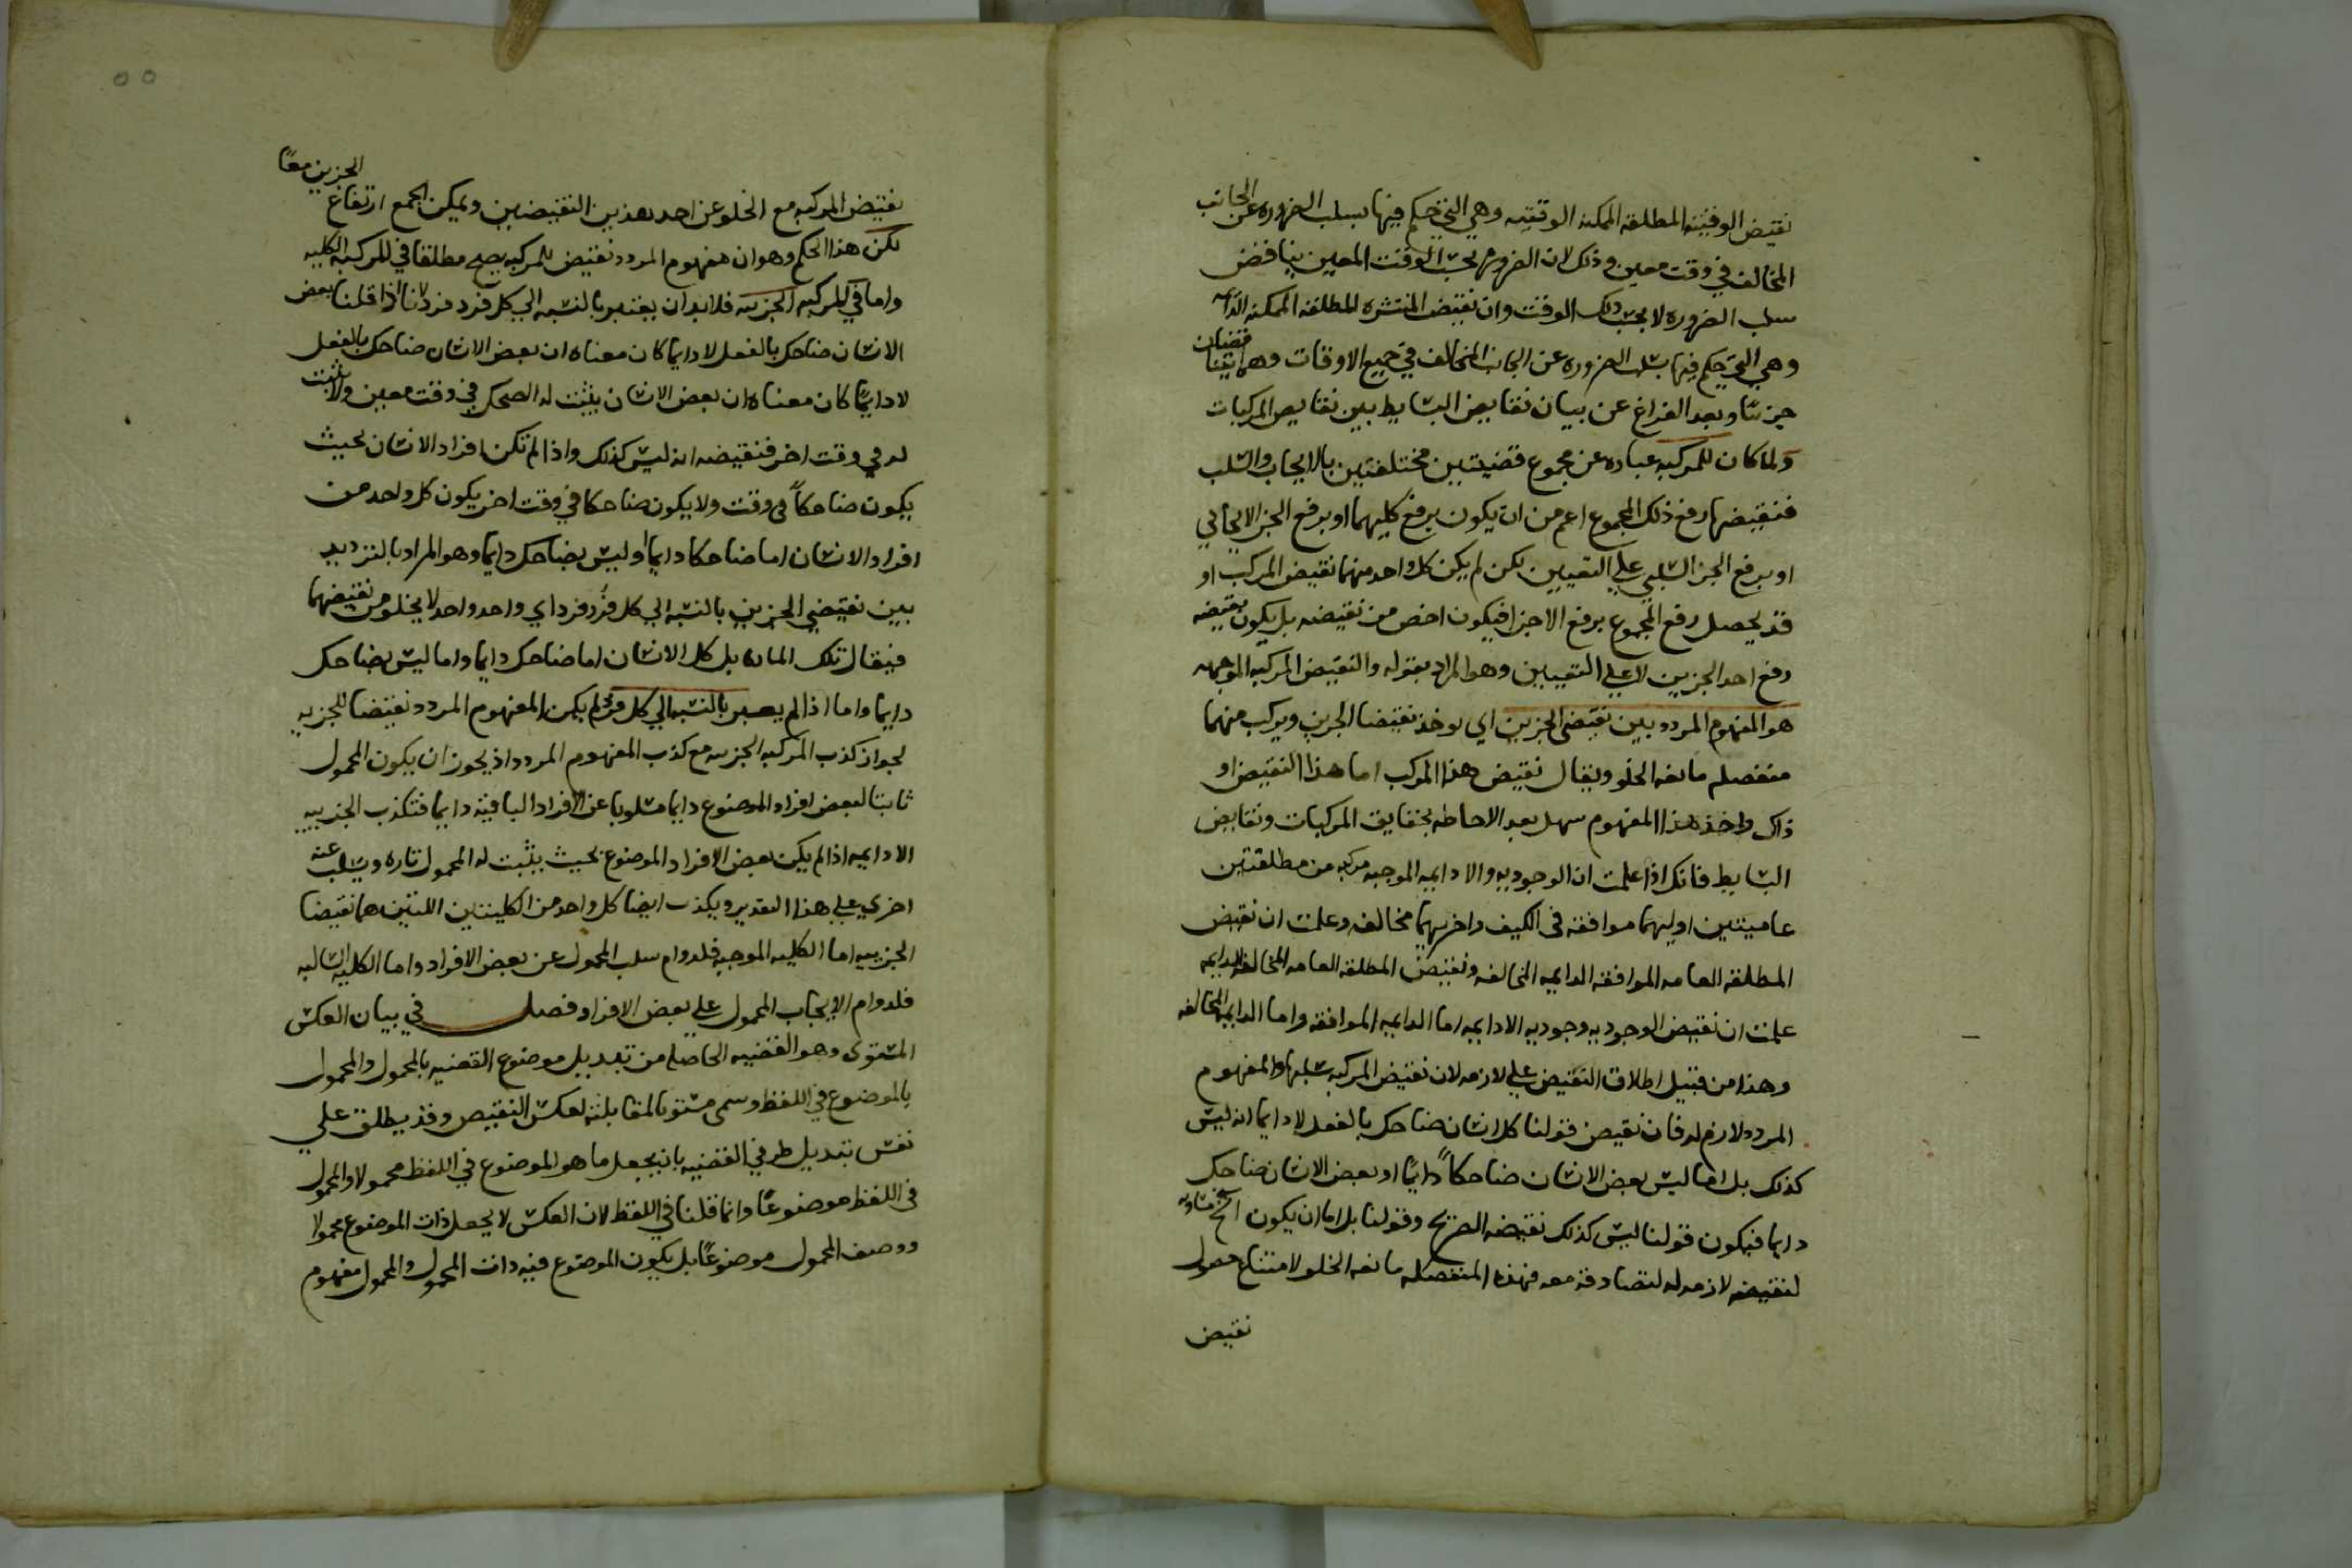 نقيض الوقتيه المطلقه الممكنه الوقتيه وهي التي حكم فيها بسلب الضروره عن الجانب
المخالف في وقت معين وذلك لان الضروره بحسب الوقت المعين يناقض
سلب الضروره لا بحسب ذلك الوقت وان نقيض المنتشره المطلقه الممكنه الدايمه
وهي التي حكم فيها بسلب الضروره عن الجانب المخالف في جميع الاوقات وهما يتناقضان
جزئتا وبعد الفراغ عن بيان نقايض البسايط بين نقايض المركبات
ولما كان للمركبه عباره عن مجموع قضيتين مختلفتين بالايجاب والسلب
فنقيضها رفع ذلك المجموع اعم من ان يكون برفع كليهما او برفع الجز الايجابي
او برفع الجز السلبي علي التعيين لكن لم يكن كل واحد منهما نقيض المركب او
قد يحصل رفع المجموع برفع الاجزا فيكون اخص من نقيضه بل يكون نقيضه
رفع احد الجزين لا علي التعيين وهو المراد بقوله والنقيض المركبه الموجهه
هو المفهوم المردد بين نقيضي الجزين اي يوخذ نقيضا الجزين ويركب منهما
منفصله مانعه الخلو ويقال نقيض هذا المركب اما هذا النقيض او
ذاك واخذ هذا المفهوم سهل بعد الاحاطه بحقايق المركبات ونقايض
البسايط فانك اذا علمت ان الوجوديه والادايمه الموجبه مركبه من مطلقتين
عاميتين اوليهما موافقه في الكيف واخريهما مخالفه وعلمت ان نقيض
المطلقه العامه الموافقه الدايمه المخالفه ونقيض المطلقه العامه المخالفه الدايمه
علمت ان نقيض الوجوديه وجوديه الادايمه اما الدايمه الموافقه واما الدايمه المخالفه
وهذا من قبيل اطلاق النقيض علي لازمه لان نقيض المركبه سلبها والمفهوم
المردد لازم له فان نقيض قولنا كل انسان ضاحك بالفعل لا دايما انه ليس
كذلك بل اما ليس بعض الانسان ضاحكاً دايماً او بعض الانسان ضاحك
دايما فيكون قولنا ليس كذلك نقيضه الصريح وقولنا بل اما ان يكون الخ مساويه
لنقيضه لازمه له لتصادقه معه فهذه المنفصله مانعه الخلو لامتناع حصول
نقيض
الجزين معًا
نقيض المركبه مع الخلو عن احد هذين النقيضين ويمكن الجمع ارتفاع
لكن هذا الحكم وهو ان مفهوم المردد نقيض للمركبه يصح مطلقا في المركبه الكليه
واما في المركبه الجزيه فلا بد ان يعتبر بالنسبه الي كل فرد فرد لانا اذا قلنا بعض
الانسان ضاحك بالفعل لا دايما كان معناه ان بعض الانسان ضاحك بالفعل
لا دايمًا كان معناه ان بعض الانسان يثبت له الضحك في وقت معين ولا يثبت
له في وقت اخر فنقيضه انه ليس كذلك واذا لم تكن افراد الانسان بحيث
يكون ضاحكاً في وقت ولا يكون ضاحكا في وقت اخر يكون كل واحد من
افراد الانسان اما ضاحكا دايما او ليس بضاحك دايما وهو المراد بالترديد
بين نقيضي الجزين بالنسبه الي كل فرد فرد اي واحد واحد لا يخلو من نقيضهما
فيقال تلك الماده بل كل الانسان اما ضاحك دايما واما ليس بضاحك
دايما واما اذا لم يعتبر بالنسبه الي كل فرد لم يكن المفهوم المردد نقيضا للجزيه
لجواز كذب المركبه الجزيه مع كذب المفهوم المردد اذ يجوز ان يكون المحمول
ثابتا لبعض افراد الموضوع دايما مسلوبا عن الافراد الباقيه دايما فتكذب الجزييه
الادايمه اذا لم يكن بعض الافراد الموضوع بحيث يثبت له المحمول تاره ويسلب عنه
اخري علي هذا التقدير ويكذب ايضا كل واحد من الكليتين اللتين هما نقيضا
الجزييه اما الكليه الموجبه فلدوام سلب المحمول عن بعض الافراد واما الكليه السالبه
فلدوام الايجاب المحمول علي بعض الافراد فصل في بيان العكس
المستوي وهو القضيه الحاصله من تبديل موضوع القضيه بالمحمول والمحمول
بالموضوع في اللفظ وسمي مستويا لمقابلته لعكس النقيض وقد يطلق علي
نفس تبديل طرفي القضيه بان يجعل ما هو الموضوع في اللفظ محمولا والمحمول
في اللفظ موضوعًا وانما قلنا في اللفظ لان العكس لا يجعل ذات الموضوع محمولا
ووصف المحمول موضوعًا بل يكون الموضوع فيه ذات المحمول والمحمول مفهوم